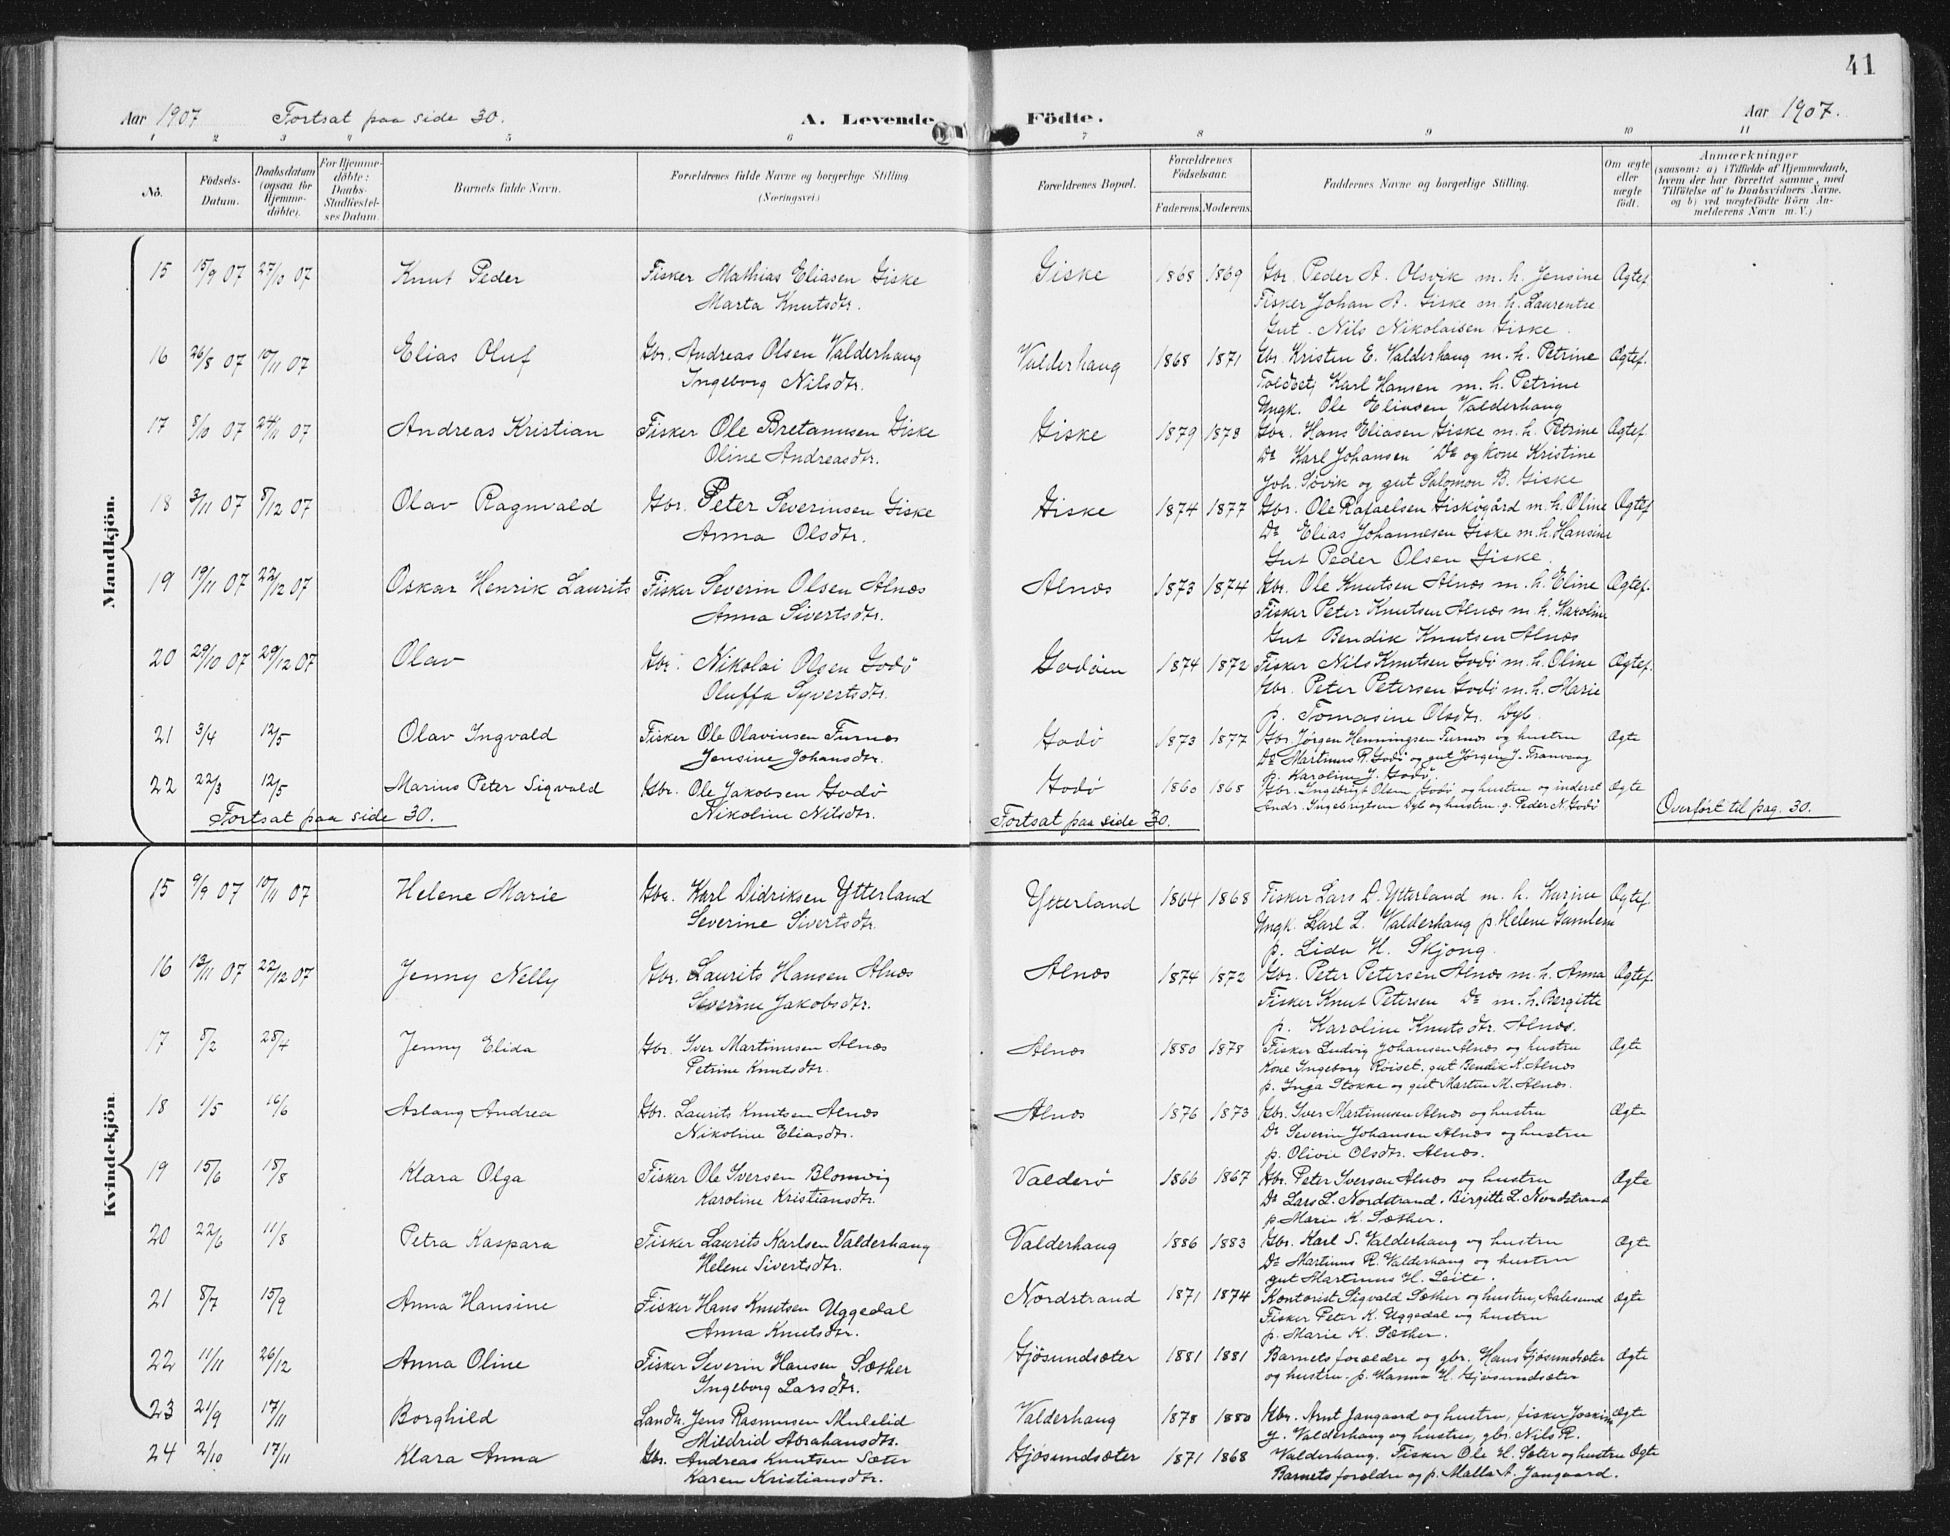 41
Aar 1907 Fortsat paa side 30. A. Levende Födte. Aar 1907.
1 2 3 4 5 6 7 8 9 10 11
No.
Födsels-Datum.
Daabsdatum (ogsaa for Hjemmedöbte).
For Hjemmedöbte: Daabs-Stadfæstelses Datum.
Barnets fulde Navn.
Forældrenes fulde Navne og borgerlige Stilling (Næringsvei)
Forældrenes Bopæl.
Forældrenes Födselsaar.
Faderens. Moderens.
Faddernes Navne og borgerlige Stilling.
Om ægte eller uægte födt.
Anmærkninger
(saasom: a) i Tilfælde af Hjemmedaab, hvem der har forrettet samme, med Tilföielse af to Daabsvidners Navne. og b) ved uægtefödte Börn Anmelderens Navn m. V.)
Mandkjön.
15 15/9 07 27/10 07 Knut Peder Fisker Mathias Eliasen Giske Giske 1868 1869 Gbr. Peder A. Olsvik m. h. Jensine Ægtef.
Marta Knutsdtr. Fisker Johan A. Giske m. h. Laurentse
Gut. Nils Nikolaisen Giske.
16 26/8 07 10/11 07 Elias Oluf Gbr. Andreas Olsen Valderhaug Valderhaug 1868 1871 Gbr. Kristen E. Valderhaug m. h. Petrine Ægtef.
Ingeborg Nilsdtr. Toldbetj Karl Hansen m. h. Petrine
Ungk. Ole Eliasen Valderhaug
17 8/10 07 24/11 07 Andreas Kristian Fisker Ole Bretanusen Giske Giske 1879 1878 Gbr. Hans Eliasen Giske m. h. Petrine Ægtef.
Oline Andreasdtr. Do Karl Johansen Do og kone Kristine
Joh. Sövik og gut Salomon B. Giske
18 3/11 07 8/12 07 Olav Ragnvald Gbr. Peter Severinsen Giske Giske 1874 1877 Gbr. Ole Rafaelsen Giskögård m. h. Oline Ægtef
Anna Olsdtr. Do Elias Johannesen Giske m. h. Hansine
Gut Peder Olsen Giske.
19 19/11 07 22/12 07 Oskar Henrik Laurits Fisker Severin Olsen Alnæs Alnæs 1873 1874 Gbr. Ole Knutsen Alnæs m. h. Eline Ægtef.
Anna Sivertsdtr. Fisker Peter Knutsen Alnæs m. h. Karoline
Gut Bendik Knutsen Alnæs
20 29/10 07 29/12 07 Olav Gbr. Nikolai Olsen Godö Godöen 1874 1872 Fisker Nils Knutsen Godö m. h. Oline Ægtef.
Oluffa Syvertsdtr. Gbr. Peter Petersen Godö m. h. Marie
p. Tomasine Olsdtr. Dyb.
21 3/4 12/5 Olav Ingvald Fisker Ole Olavinsen Furnes Godö 1873 1877 Gbr. Jörgen Henningsen Furnes og hustru Ægte
Jensine Johansdtr. Do Martinus R. Godö og gut Jörgen J. Tranvaag
p. Karoline J. Godö.
22 22/3 12/5 Marius Peter Sigvald Gbr. Ole Jakobsen Godö Godö 1860 1868 Gbr. Ingebrigt Olsen Godö og hustru og inderst Ægte
Nikoline Nilsdtr. Andr. Ingebrigtsen Dyb og hustru. g. Peder N. Godö
Fortsat paa side 30. Fortsat paa side 30. Overført til pag. 30.
Kvindekjön.
15 9/9 07 10/11 07 Helene Marie Gbr. Karl Didriksen Ytterland Ytterland 1864 1868 Fisker Lars D. Ytterland m. h. Karine Ægtef.
Severine Sivertsdtr. Ungk. Karl L. Valderhaug p. Helene Gamlem
p. Lida H. Skjong.
16 13/11 07 22/12 07 Jenny Nelly Gbr. Laurits Hansen Alnæs Alnæs 1874 1872 Gbr. Peter Petersen Alnæs m. h. Anna Ægtef.
Severine Jakobsdtr. Fisker Knut Petersen Do m. h. Bergitte
p. Karoline Knutsdtr. Alnæs.
17 8/2 28/4 Jenny Elida Gbr. Iver Martinusen Alnæs Alnæs 1880 1878 Fisker Ludvig Johansen Alnæs og hustru Ægte
Petrine Knutsdtr. Kone Ingeborg Röiset, gut Bendik K. Alnæs
p. Inga Stokke og gut Martin M. Alnæs.
18 1/5 16/6 Aslaug Andrea Gbr. Laurits Knutsen Alnæs Alnæs 1876 1873 Gbr. Iver Martinusen Alnæs og hustru Ægte
Nikoline Eliasdtr. Do Severin Johansen Alnæs og hustru
p. Olivie Olsdtr. Alnæs.
19 15/6 18/8 Klara Olga Fisker Ole Iversen Blomvig Valderö 1866 1867 Gbr. Peter Iversen Alnæs og hustru Ægte
Karoline Kristiansdtr. Do Lars L. Nordstrand. Birgitte L. Nordstrand
p. Marie K. Sæther.
20 22/6 11/8 Petra Kaspara Fisker Laurits Karlsen Valderhaug Valderhaug 1886 1883 Gbr. Karl S. Valderhaug og hustru Ægte
Helene Sivertsdtr. Do Martinus R. Valderhaug og hustru
gut Martinus H. Leite.
21 8/7 15/9 Anna Hansine Fisker Hans Knutsen Uggedal Nordstrand 1871 1874 Kontorist Sigvald Sæther og hustru, Aalesund Ægte
Anna Knutsdtr. Fisker Peter K. Uggedal og hustru
p. Marie K. Sæther.
22 11/11 26/12 Anna Oline Fisker Severin Hansen Sæther Gjösundsæter 1881 1881 Barnets forældre og gbr. Hans Gjösundsæter Ægte
Ingeborg Larsdtr. og hustru. p. Hanna H. Gjösundsæter
23 21/9 17/11 Borghild Landh. Jens Rasmusen Mulelid Valderhaug 1878 1880 Gbr. Arnt Jangaard og hustru, fisker Joakim Ægte
Mildrid Abrahamsdtr. J. Valderhaug og hustru, gbr. Nils R.
24 2/10 17/11 Klara Anna Gbr. Andreas Knutsen Sæter Gjösundsæter 1871 1868 Valderhaug. Fisker Ole H. Sæter og hustru Ægte
Karen Kristiansdtr. Barnets forældre og p. Malla A. Jangaard.